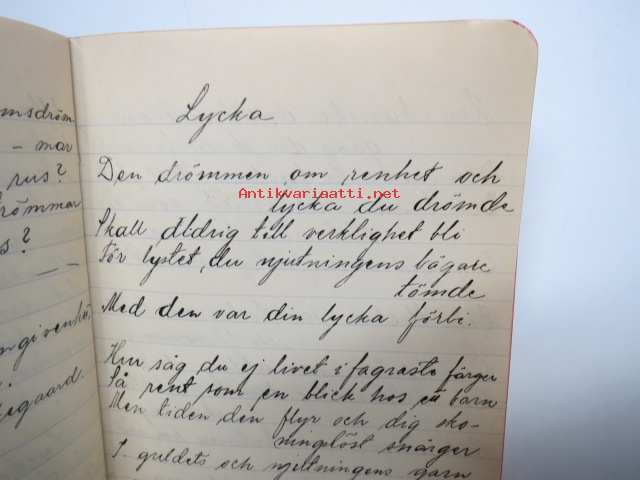 Lycka.
Den drömmen om renhet och
lycka du drömde
Skall aldrig till verklighet bli
För lystet du njutningens bägare
tömde
Med den var din lycka förbi.
Hur såg du ej livet i fagraste färger
Så rent som en blick hos ett barn
Men tiden den flyr och dig sko-
ningslöst snärger
I guldets och njutningens garn
msdröm
- mar
rus?
römmar
s?
ngivenhet
egaard.
Antikvariaatti.net